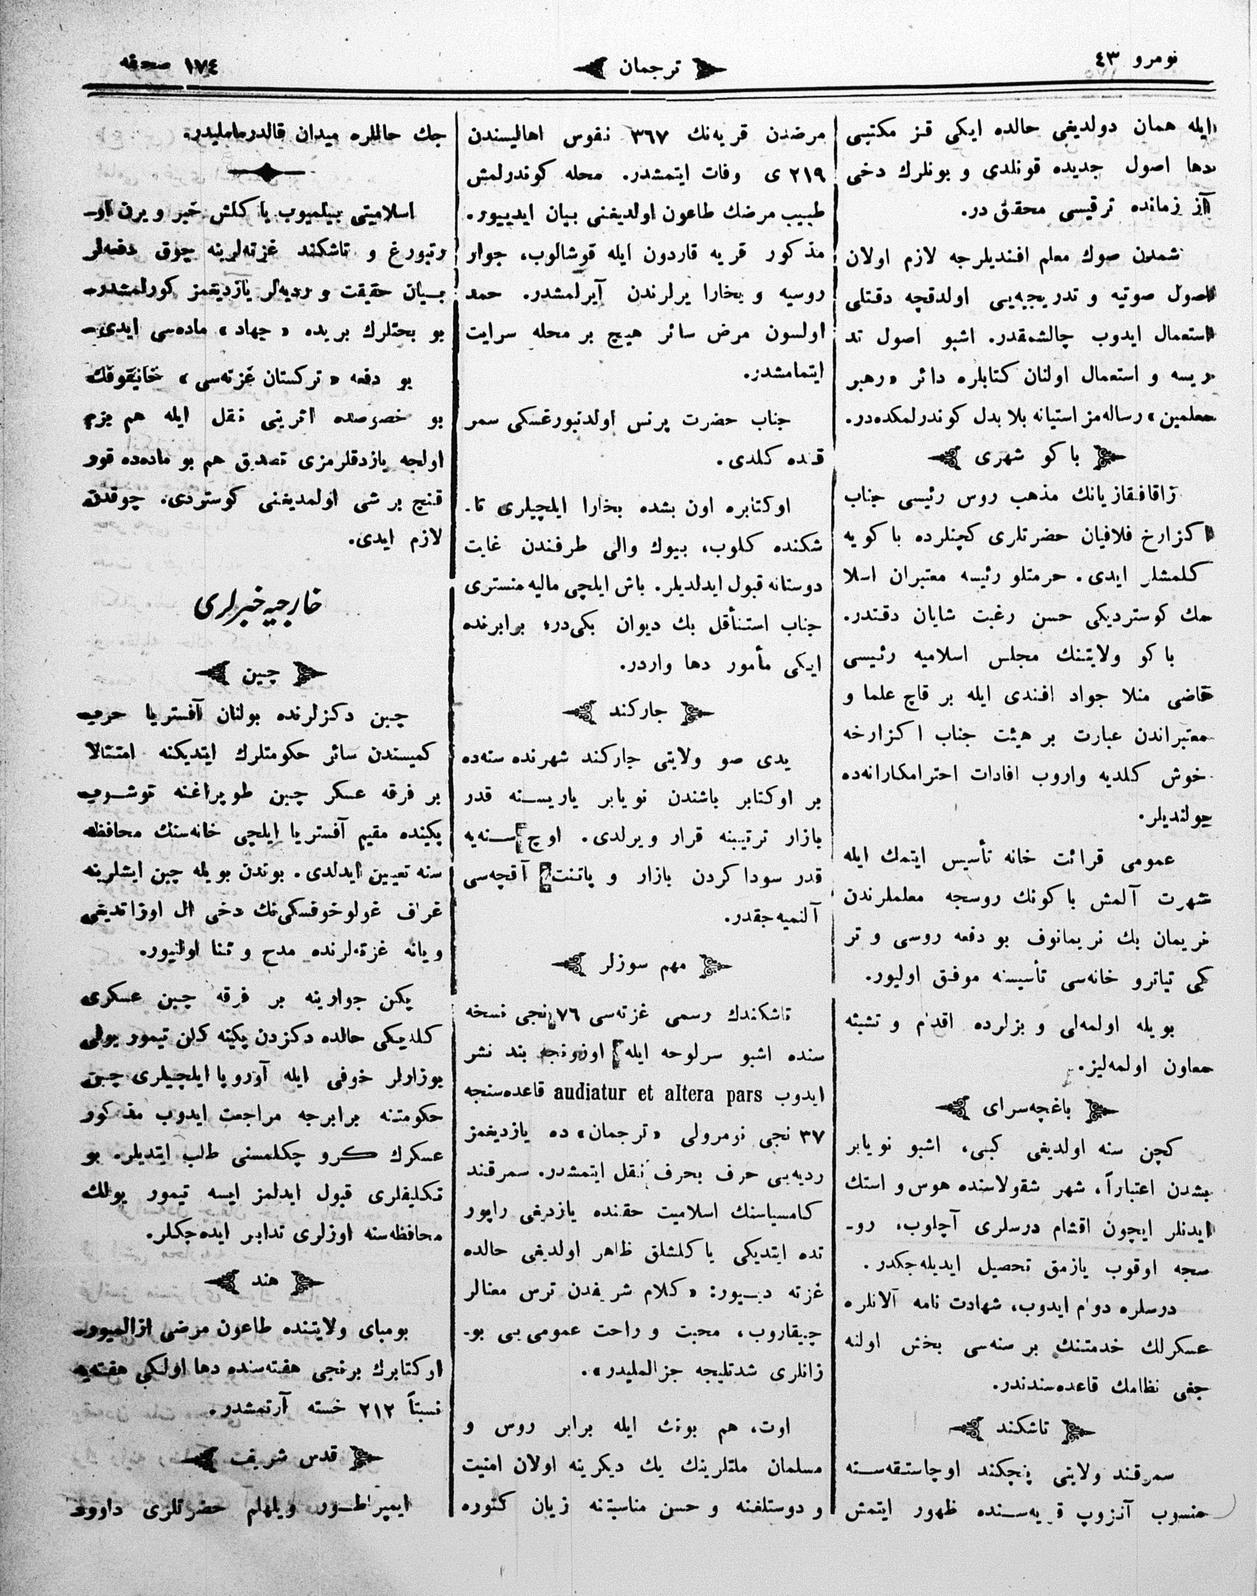 نومرو ٤٣
ترجمان
١٧٤ صحفه
ايله همان دولديغى حالده ايكى قز مكتبى
دها اصول جديده قونلدى و بونلرك دخى
آز زمانده ترقيسى محقق در.
شمدن صوك معلم افنديلرجه لازم اولان
اصول صوتيه و تدريجيه‌يى اولدقچه دقتلى
استعمال ايدوب چالشمقدر. اشبو اصول تد
ريسه و استعمال اولنان كتابلره دائر «رهبر
معلمين» رساله‌مز استيانه بلا بدل كوندرلمكده‌در.
باكو شهرى
زاقافقازيانك مذهب روس رئيسى جناب
اكزارخ فلافيان حضرتلرى كچنلرده باكويه
كلمشلر ايدى. حرمتلو رئيسه معتبران اسلا
مك كوسترديكى حسن رغبت شايان دقتدر.
باكو ولايتنك مجلس اسلاميه رئيسى
قاضى منلا جواد افندى ايله بر قاچ علما و
معتبراندن عبارت بر هيئت جناب اكزارخه
خوش كلديه واروب افادات احترامكارانه‌ده
بولنديلر.
عمومى قرائت خانه تأسيس ايتمك ايله
شهرت آلمش باكونك روسجه معلملرندن
نريمان بك نريمانوف بو دفعه روسى و تر
كى تياترو خانه‌سى تأسيسنه موفق اوليور.
بويله اولمه‌لى و بزلرده اقدام و تشبثه
معاون اولمه‌ليز.
باغچه‌سراى
كچن سنه اولديغى كبى، اشبو نويابر
بشدن اعتباراً، شهر شقولاسنده هوس و استك
ايدنلر ايچون اقشام درسلرى آچلوب، رو-
سجه اوقوب يازمق تحصيل ايديله‌جكدر.
درسلره دوام ايدوب، شهادت نامه آلانلره
عسكرلك خدمتنك بر سنه‌سى بخش اولنه
جغى نظامك قاعده‌سندندر.
تاشكند
سمرقند ولايتى پنچكند اوچاستقه‌سنه
منسوب آنزوپ قريه‌سنده ظهور ايتمش
مرضدن قريه‌نك ٣٦٧ نفوس اهاليسندن
٢١٩ ى وفات ايتمشدر. محله كوندرلمش
طبيب مرضك طاعون اولديغنى بيان ايدييور.
مذكور قريه قاردون ايله قوشالوب، جوار
روسيه و بخارا يرلرندن آيرلمشدر. حمد
اولسون مرض سائر هيچ بر محله سرايت
ايتمامشدر.
جناب حضرت پرنس اولدنبورغسكى سمر
قنده كلدى.
اوكتابره اون بشده بخارا ايلچيلرى تا-
شكنده كلوب، بيوك والى طرفندن غايت
دوستانه قبول ايدلديلر. باش ايلچى ماليه منسترى
جناب استنأقل بك ديوان بكى‌در؛ برابرنده
ايكى مأمور دها واردر.
جاركند
يدى صو ولايتى جاركند شهرنده سنه‌ده
بر اوكتابر باشندن نويابر ياريسنه قدر
بازار ترتيبنه قرار ويرلدى. اوچ سنه‌يه
قدر سوداكردن بازار و پاتنت آقچه‌سى
آلنميه‌جقدر.
مهم سوزلر
تاشكندك رسمى غزته‌سى ٧٦ نجى نسخه
سنده اشبو سرلوحه ايله اوزونجه بند نشر
ايدوب audiatur et altera pars قاعده‌سنجه
٣٧ نجى نومرولى «ترجمان» ده يازديغمز
رديه‌يى حرف بحرف نقل ايتمشدر. سمرقند
كامسياسنك اسلاميت حقنده يازديغى راپور
تده ايتديكى ياكلشلق ظاهر اولديغى حالده
غزته ديیور: «كلام شريفدن ترس معنالر
چيقاروب، محبت و راحت عمومى‌يى بو-
زانلرى شدتليجه جزالمليدر».
اوت، هم بونك ايله برابر روس و
مسلمان ملتلرينك يك ديكرينه اولان امنيت
و دوستلغنه و حسن مناسبتنه زيان كتوره
جك حاللره ميدان قالدرمامليدر.
اسلاميتى بيلميوب ياكلش خبر ويرن او-
رنبورغ و تاشكند غزته‌لرينه چوق دفعه‌لر
بيان حقيقت و رديه‌لر يازديغمز كورلمشدر.
بو بحثلرك بريده «جهاد» ماده‌سى ايدى.
بو دفعه «تركستان غزته‌سى» خانيقوفك
بو خصوصده اثرينى نقل ايله هم بزم
اولجه يازدقلرمزى تصديق هم بو ماده‌ده قور
قنچ بر شى اولمديغنى كوستردى. چوقدن
لازم ايدى.
خارجيه خبرلرى
چين
چين دكزلرنده بولنان آفستريا حرب
كميسندن سائر حكومتلرك ايتديكنه امتثالا
بر فرقه عسكر چين طوپراغنه توشوب
پكينده مقيم آفستريا ايلچى خانه‌سنك محافظه
سنه تعيين ايدلدى. بوندن بويله چين ايشلرينه
غراف غولوخوفسكى‌نك دخى ال اوزاتديغى
ويانه غزته‌لرنده مدح و ثنا اولنيور.
پكن جوارينه بر فرقه چين عسكرى
كلديكى حالده دكزدن پكينه كلن تيمور يولى
بوزارلر خوفى ايله آوروپا ايلچيلرى چين
حكومتنه برابرجه مراجعت ايدوب مذكور
عسكرك كرو چكلمسنى طلب ايتديلر. بو
تكليفلرى قبول ايدلمز ايسه تيمور يولك
محافظه‌سنه اوزلرى تدابر ايده‌جكلر.
هند
بومباى ولايتنده طاعون مرضى ازالميور.
اوكتابرك برنجى هفته‌سنده دها اولكى هفته‌يه
نسبتاً ٢١٢ خسته آرتمشدر.
قدس شريف
ايمپراطور ويلهلم حضرتلرى داوود